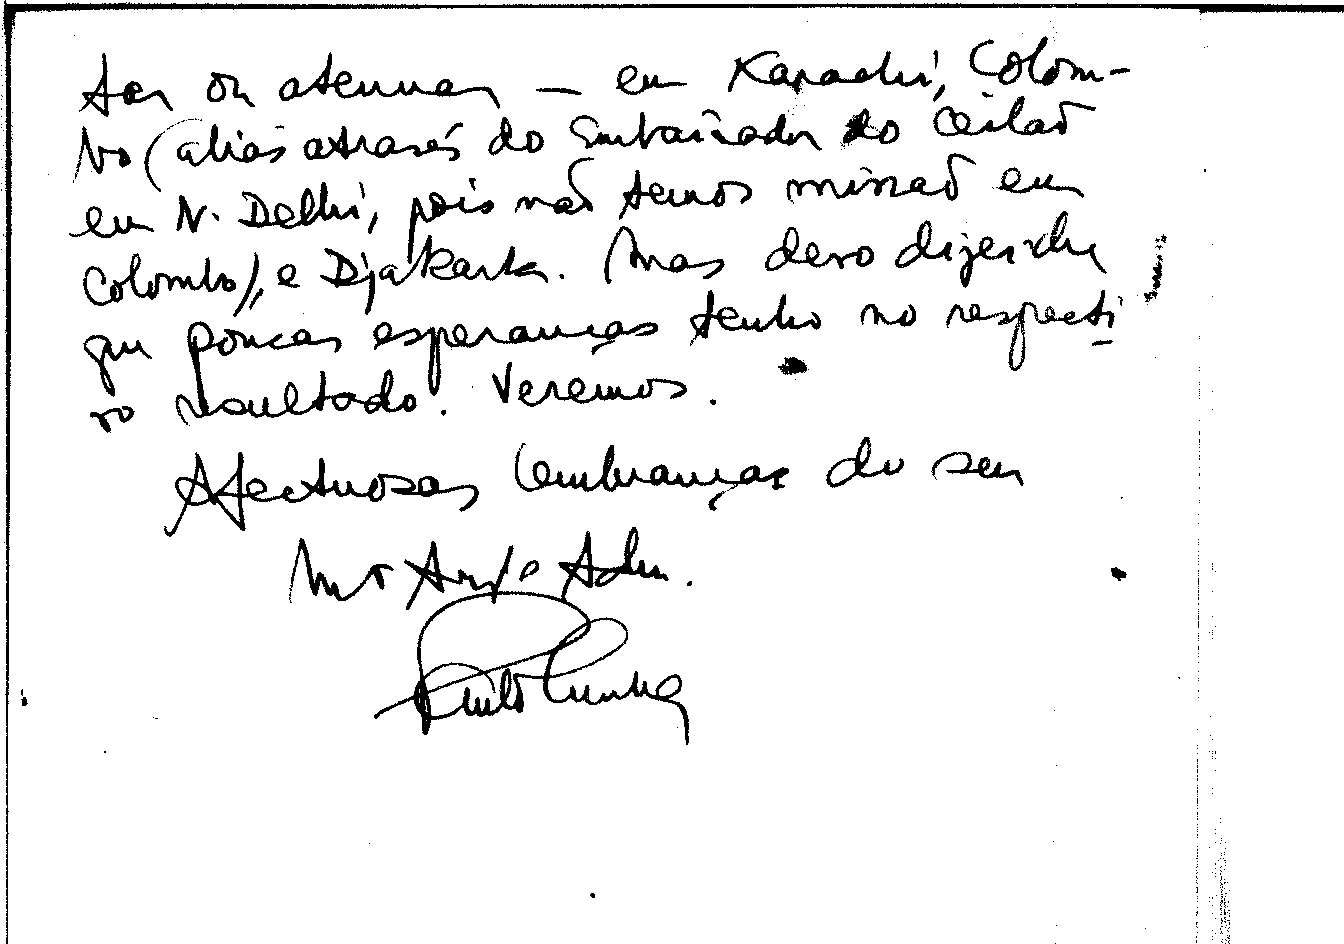 tar ou atenuar — em Karachi, Colom-
bo (aliás através do Embaixador do Ceilão
em N. Delhi, pois não temos missão em
Colombo), e Djakarta. Mas devo dizer-lhe
que poucas esperanças tenho no respecti
vo resultado. Veremos.
Afectuosas lembranças do seu
Mto Amº e Adm.
Paulo Cunha